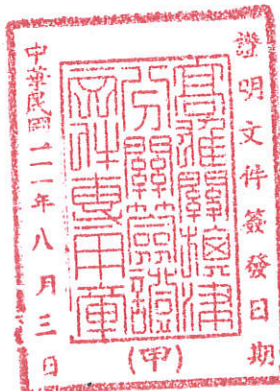 證明文件簽發日期
高雄關旗津
分關簽證
文件專用章
(甲)
中華民國一一一年八月三日